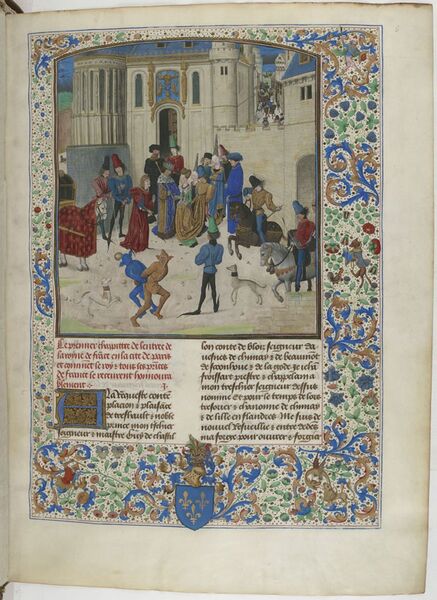 Le premier chappittre de lentree de
la royne de france en la cite de paris
et comment le roy et tous les princes
de france le receurent honnoura
blement .j.
A la requeste conte
placion et plaisace
de treshault et noble
prince mon treschier
seigneur et maistre Guy de chastil
lon conte de blois seigneur da
uesnes de chimay et de beaumot
de sconhoue et de la gode je iehan
froissart prestre et chappelain a
mon treschier seigneur dessus
nomme et pour le temps de lors
tresorier et chanonne de chimay
et de lille en flandres Me suis de
nouuel resueillie et entre dedes
ma forge pour ouurer et forgier